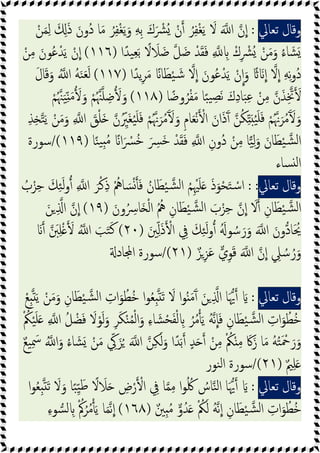 وقال تعالي : إِنَّ اللَّهَ لَا يَغْفِرُ أَنْ يُشْرَكَ بِهِ وَيَغْفِرُ مَا دُونَ ذَلِكَ لِمَنْ
يَشَاءُ وَمَنْ يُشْرِكْ بِاللَّهِ فَقَدْ ضَلَّ ضَلَالًا بَعِيدًا (١١٦) إِنْ يَدْعُونَ مِنْ
دُونِهِ إِلَّا إِنَاثًا وَإِنْ يَدْعُونَ إِلَّا شَيْطَانًا مَرِيدًا (١١٧) لَعَنَهُ اللَّهُ وَقَالَ
لَأَتَّخِذَنَّ مِنْ عِبَادِكَ نَصِيبًا مَفْرُوضًا (١١٨) وَلَأُضِلَّنَّهُمْ وَلَأُمَنِّيَنَّهُمْ
وَلَآمُرَنَّهُمْ فَلَيُبَتِّكُنَّ آذَانَ الْأَنْعَامِ وَلَآمُرَنَّهُمْ فَلَيُغَيِّرُنَّ خَلْقَ اللَّهِ وَمَنْ يَتَّخِذِ
الشَّيْطَانَ وَلِيًّا مِنْ دُونِ اللَّهِ فَقَدْ خَسِرَ خُسْرَانًا مُبِينًا (١١٩)/سورة
النساء
وقال تعالي : : اسْتَحْوَذَ عَلَيْهِمُ الشَّيْطَانُ فَأَنْسَاهُمْ ذِكْرَ اللَّهِ أُولَئِكَ حِزْبُ
الشَّيْطَانِ أَلَا إِنَّ حِزْبَ الشَّيْطَانِ هُمُ الْخَاسِرُونَ (١٩) إِنَّ الَّذِينَ
يُحَادُّونَ اللَّهَ وَرَسُولَهُ أُولَئِكَ فِي الْأَذَلِّينَ (٢٠) كَتَبَ اللَّهُ لَأَغْلِبَنَّ أَنَا
وَرُسُلِي إِنَّ اللَّهَ قَوِيٌّ عَزِيزٌ (٢١)/سورة المجادلة
وقال تعالي : يَا أَيُّهَا الَّذِينَ آمَنُوا لَا تَتَّبِعُوا خُطُوَاتِ الشَّيْطَانِ وَمَنْ يَتَّبِعْ
خُطُوَاتِ الشَّيْطَانِ فَإِنَّهُ يَأْمُرُ بِالْفَحْشَاءِ وَالْمُنْكَرِ وَلَوْلَا فَضْلُ اللَّهِ عَلَيْكُمْ
وَرَحْمَتُهُ مَا زَكَا مِنْكُمْ مِنْ أَحَدٍ أَبَدًا وَلَكِنَّ اللَّهَ يُزَكِّي مَنْ يَشَاءُ وَاللَّهُ سَمِيعٌ
عَلِيمٌ (٢١)/سورة النور
وقال تعالي : يَا أَيُّهَا النَّاسُ كُلُوا مِمَّا فِي الْأَرْضِ حَلَالًا طَيِّبًا وَلَا تَتَّبِعُوا
خُطُوَاتِ الشَّيْطَانِ إِنَّهُ لَكُمْ عَدُوٌّ مُبِينٌ (١٦٨) إِنَّمَا يَأْمُرُكُمْ بِالسُّوءِ